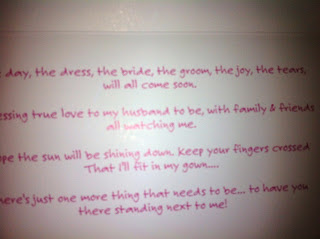 day, the dress, the bride, the groom, the joy, the tears,
will all come soon.
essing true love to my husband to be, with family & friends
all watching me.
ope the sun will be shining down. Keep your fingers crossed
That I'll fit in my gown....
here's just one more thing that needs to be... to have you
there standing next to me!